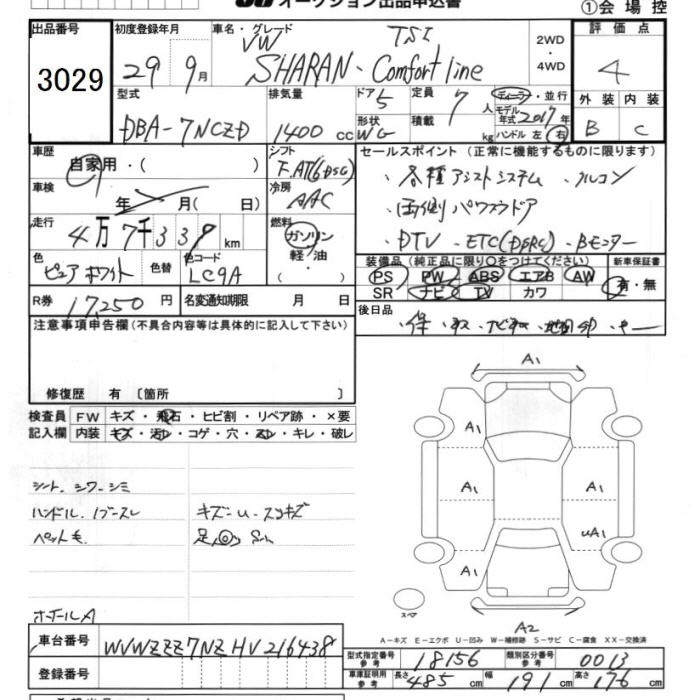 オークション出品申込書
①会場控
出品番号 初度登録年月 車名・グレード 2WD ・ 4WD 評価点
3029 29 9月 VW TSI 4
SHARAN・Comfortline
型式 排気量 ドア 5 定員 7人 ディーラー・並行 外装 内装
DBA-7NCZD 1400cc 形状 WG 積載 kg モデル年式 2017年 B C
ハンドル 左 右
車歴 シフト セールスポイント (正常に機能するものに限ります)
自家用・( ) F.AT(6DSG) ・各種アシストシステム ・クルコン
車検 冷房
年 月( 日) AAC ・両側パワスラドア
走行 燃料
4万7千339km ガソリン ・DTV ・ETC(DSRC)・Bモニター
軽・油
色 色替 色コード 装備品 (純正品に限り○をつけてください) 新車保証書
ピュアホワイト LC9A PS PW ABS エアB AW 有・無
SR ナビ TV カワ
R券 17,250円 名変通知期限 月 日 後日品
注意事項申告欄(不具合内容等は具体的に記入して下さい)
修復歴 有 〔箇所 〕
検査員 FW キズ・飛石・ヒビ割・リペア跡・×要
記入欄 内装 キズ・汚れ・コゲ・穴・スレ・キレ・破レ
A1
A1
A1 A1
uA1
A1
シート.シワ-シミ
ハンドル.
ペット毛
スペア
ホイールA
A2
A-キズ E-エクボ U-凹み W-補修跡 S-サビ C-腐食 XX-交換済
車台番号 WVWZZZ7NZHV216438
型式指定番号 参考 18156 類別区分番号 参考 0013
登録番号 車庫証明用 参考 長さ 485cm 幅 191cm 高さ 176cm